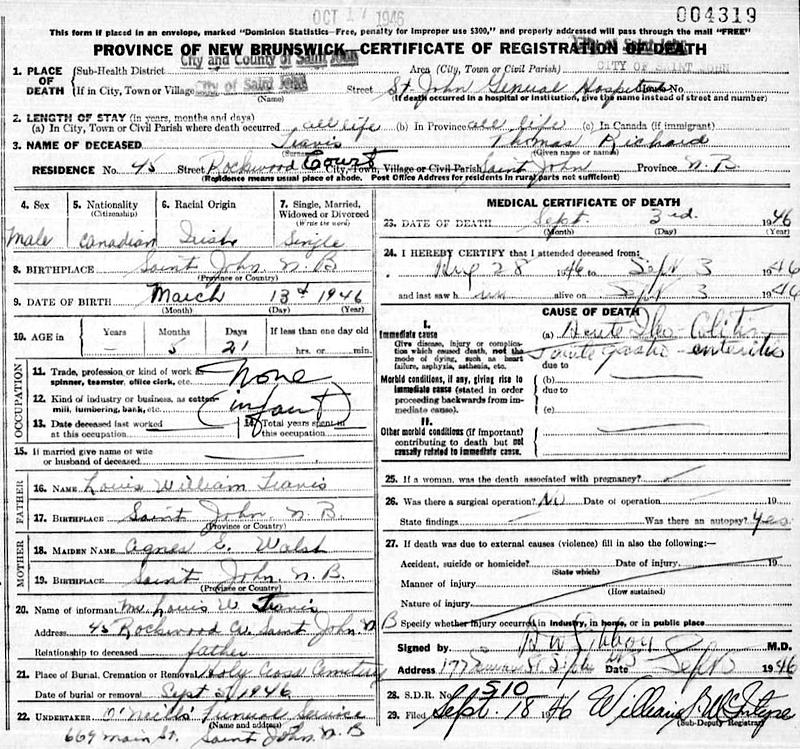 OCT 17 1946
004319
This form if placed in an envelope, marked "Dominion Statistics—Free, penalty for improper use $300," and properly addressed will pass through the mail "FREE"
PROVINCE OF NEW BRUNSWICK—CERTIFICATE OF REGISTRATION OF DEATH
1. PLACE OF DEATH {Sub-Health District City and County of Saint John Area (City, Town or Civil Parish) CITY OF SAINT JOHN
If in City, Town or Village City of Saint John Street St. John General Hospital No.
(Name) (If death occurred in a hospital or institution, give the name instead of street and number)
2. LENGTH OF STAY (in years, months and days)
(a) In City, Town or Civil Parish where death occurred all life (b) In Province all life (c) In Canada (if immigrant)
3. NAME OF DECEASED Travis Thomas Richard
(Surname) (Given name or names)
RESIDENCE No. 45 Street Rockwood Court City, Town, Village or Civil Parish Saint John Province N.B.
(Residence means usual place of abode. Post Office Address for residents in rural parts not sufficient)
4. Sex 5. Nationality (Citizenship) 6. Racial Origin 7. Single, Married, Widowed or Divorced (Write the word)
Male Canadian Irish Single
8. BIRTHPLACE Saint John N.B
(Province or Country)
9. DATE OF BIRTH March 13th 1946
(Month) (Day) (Year)
10. AGE in Years Months Days If less than one day old
— 5 21 hrs. or min.
OCCUPATION
11. Trade, profession or kind of work as spinner, teamster, office clerk, etc. None
12. Kind of industry or business, as cotton-mill, lumbering, bank, etc. (infant)
13. Date deceased last worked at this occupation 14. Total years spent in this occupation
15. If married give name of wife or husband of deceased
FATHER
16. NAME Louis William Travis
17. BIRTHPLACE Saint John N.B
(Province or Country)
MOTHER
18. MAIDEN NAME Agnes E. Walsh
19. BIRTHPLACE Saint John. N.B.
(Province or Country)
20. Name of informant Mr Louis W Travis
Address 45 Rockwood Ct. Saint John. N B
Relationship to deceased father
21. Place of Burial, Cremation or Removal Holy Cross Cemetery
Date of burial or removal Sept 5/1946
22. UNDERTAKER O'Neill's Funeral Service
(Name and address)
669 Main St. Saint John. N.B
MEDICAL CERTIFICATE OF DEATH
23. DATE OF DEATH Sept. 3rd. 1946
(Month) (Day) (Year)
24. I HEREBY CERTIFY that I attended deceased from:
Aug 28 1946 to Sept 3 1946
and last saw him alive on Sept 3 1946
CAUSE OF DEATH
I.
Immediate cause (a) Acute Ileo-Colitis
Give disease, injury or complication which caused death, not the mode of dying, such as heart failure, asphyxia, asthenia, etc.
Acute gastro-enteritis
due to
Morbid conditions, if any, giving rise to immediate cause (stated in order proceeding backwards from immediate cause).
(b)
due to
(c)
II.
Other morbid conditions (if important) contributing to death but not causally related to immediate cause.
25. If a woman, was the death associated with pregnancy?
26. Was there a surgical operation? No Date of operation 19
State findings Was there an autopsy? Yes
27. If death was due to external causes (violence) fill in also the following:—
Accident, suicide or homicide? Date of injury 19
(State which)
Manner of injury
(How sustained)
Nature of injury
Specify whether injury occurred in industry, in home, or in public place
Signed by M.D.
Address 177 Date Sept 1946
28. S.D.R. No. 510
29. Filed Sept. 18 1946 William
(Sub-Deputy Registrar)